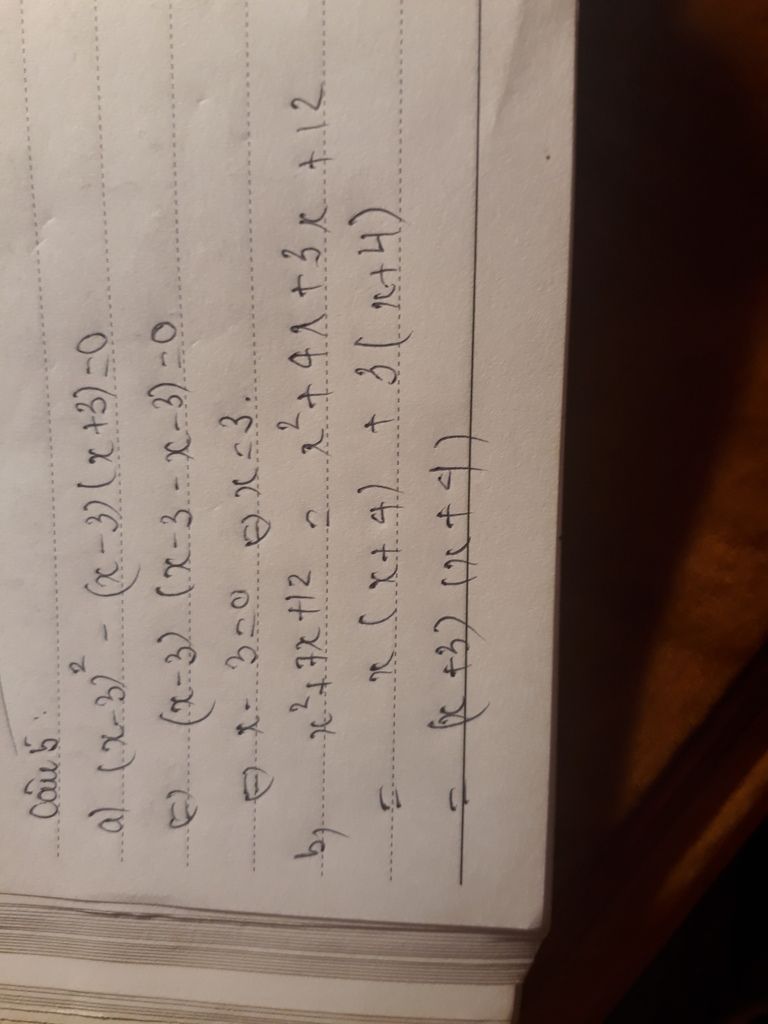 Câu 5:
a) (x-3)² - (x-3)(x+3)=0
⇔ (x-3) (x-3-x-3)=0
⇔ x-3=0 ⇔ x=3.
b, x²+7x+12 = x²+4x+3x+12
= x(x+4) + 3(x+4)
= (x+3)(x+4)